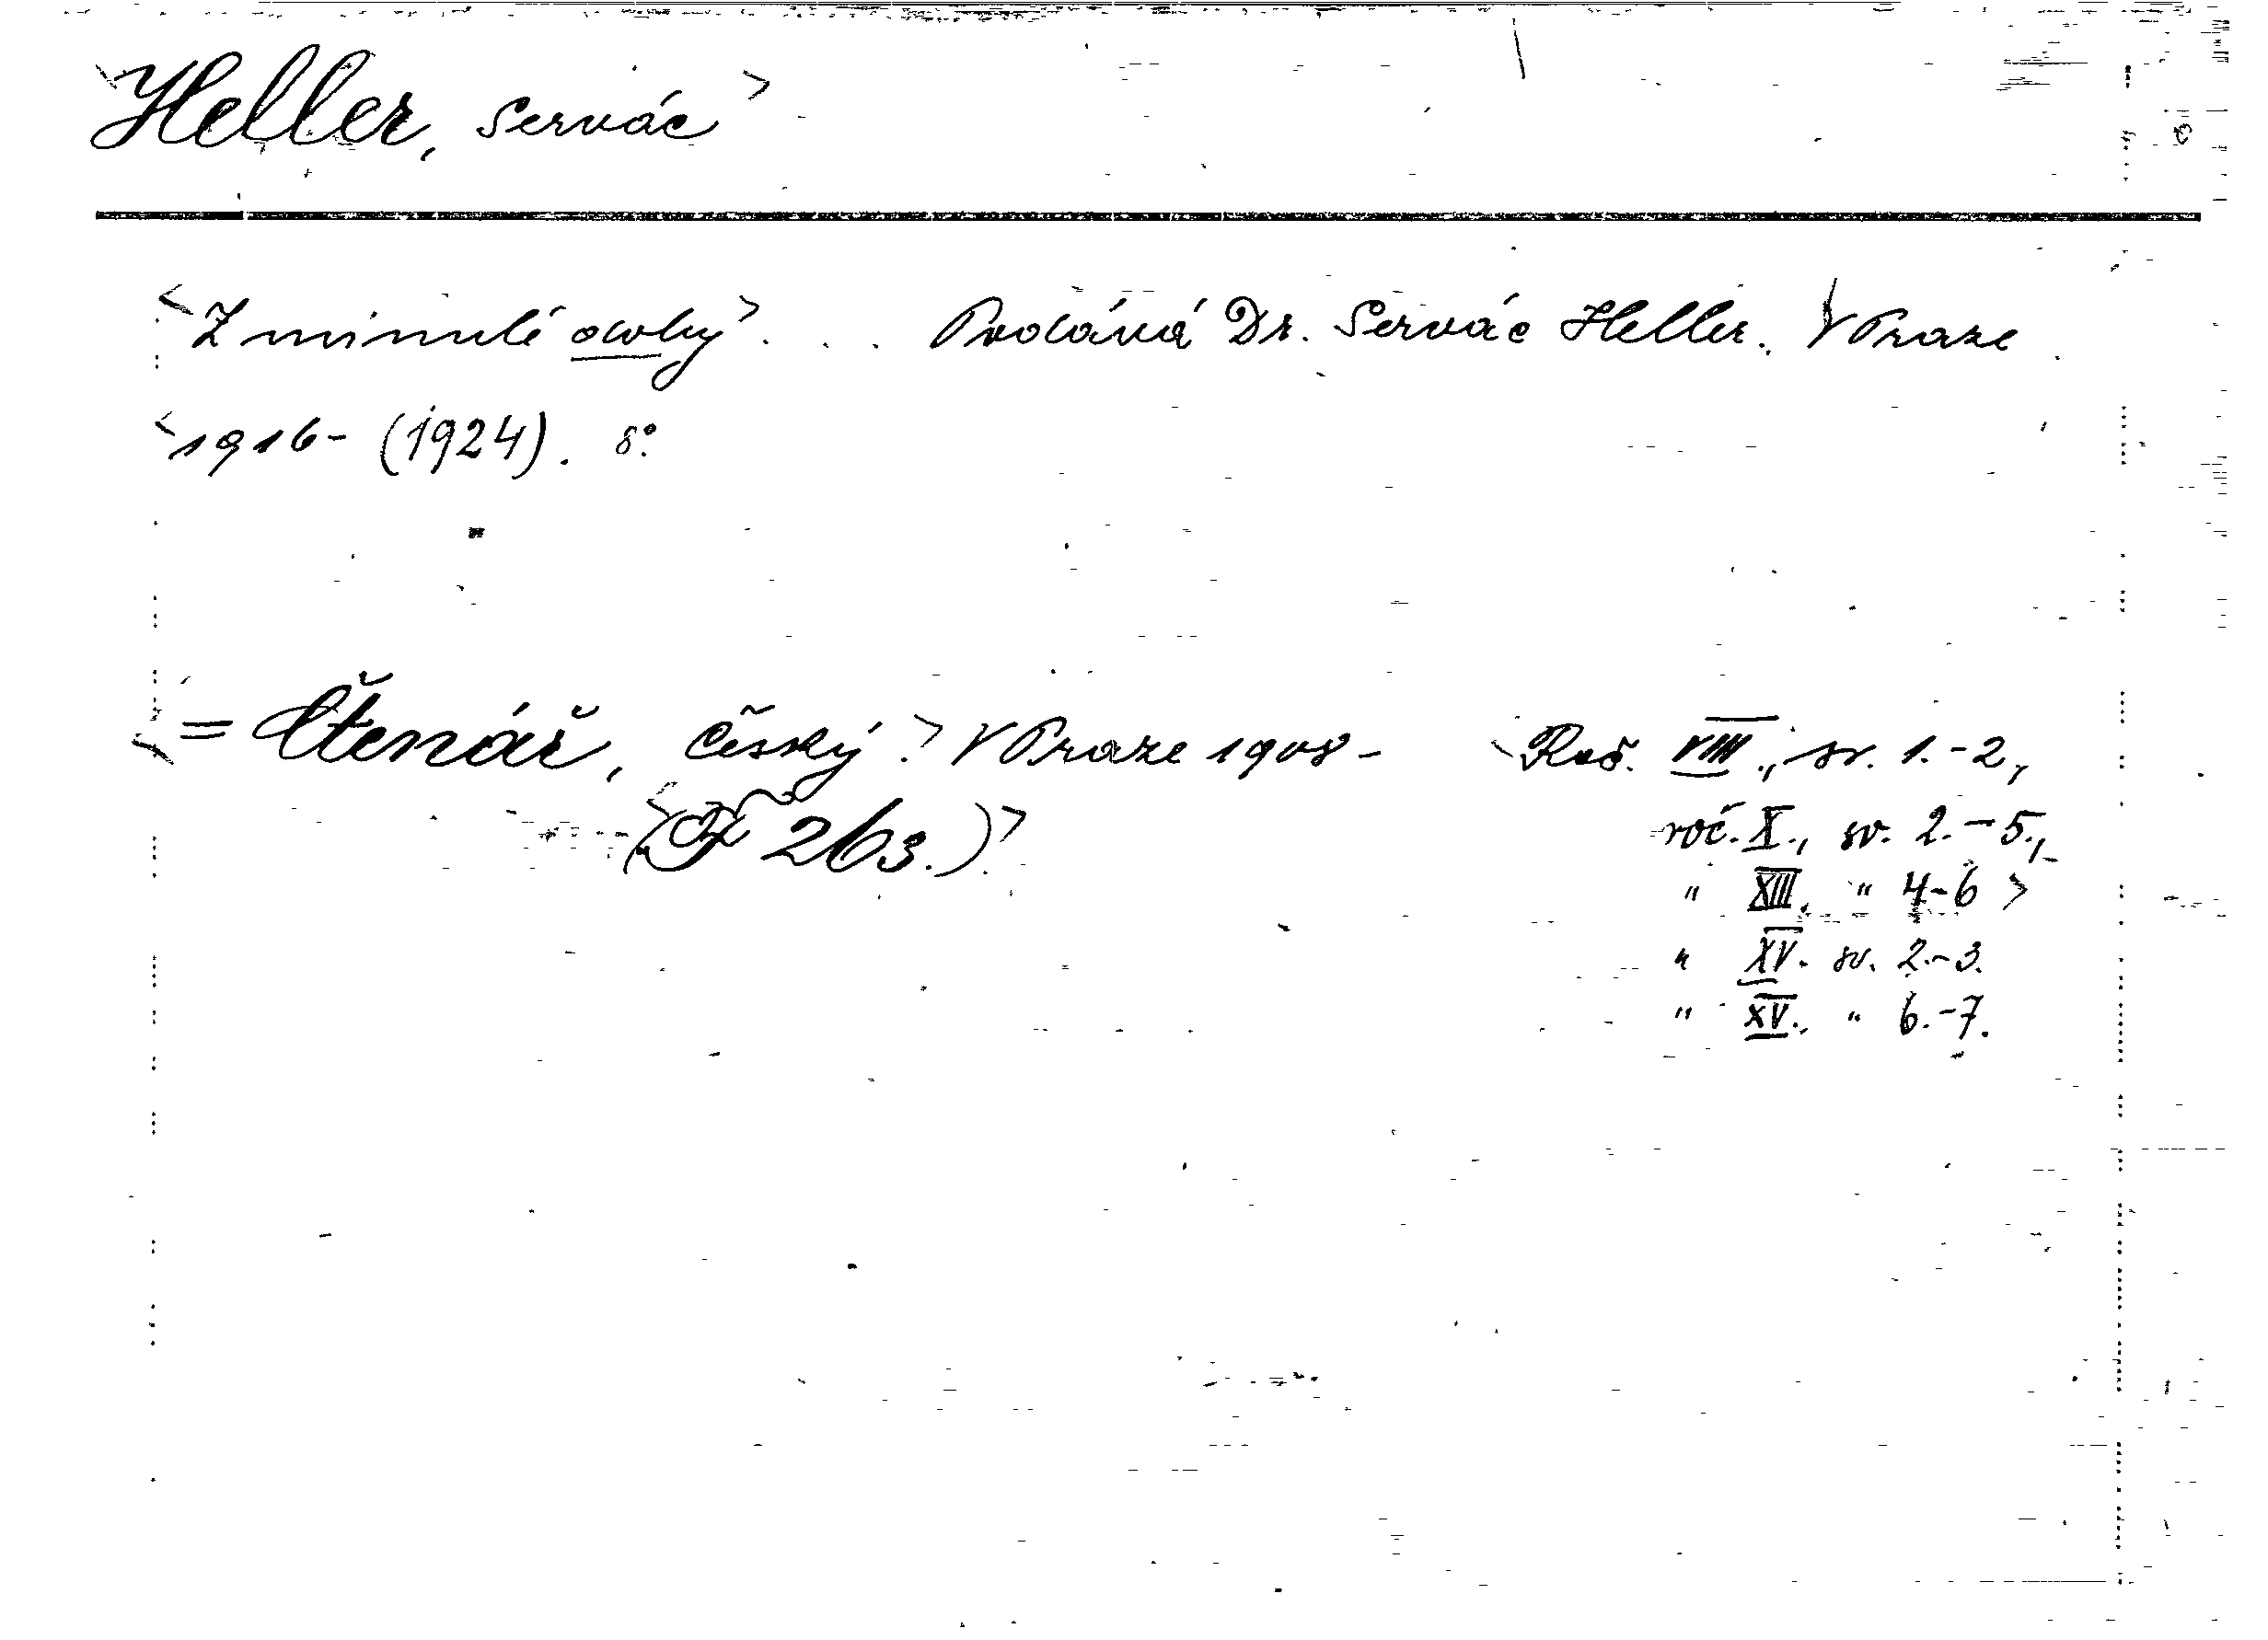 <Heller, Servác>
<Z minulé doby> . . . Podává Dr. Servác Heller. V Praze
<1916- (1924). 8°.
= Čtenář, Český.> V Praze 1908 - <Roč. VIII., sv. 1.-2,
<(F 263.)> roč. X., sv. 2.-5.,
" XIII. " 4-6 >
" XV. sv. 2.-3.
" XV., " 6.-7.